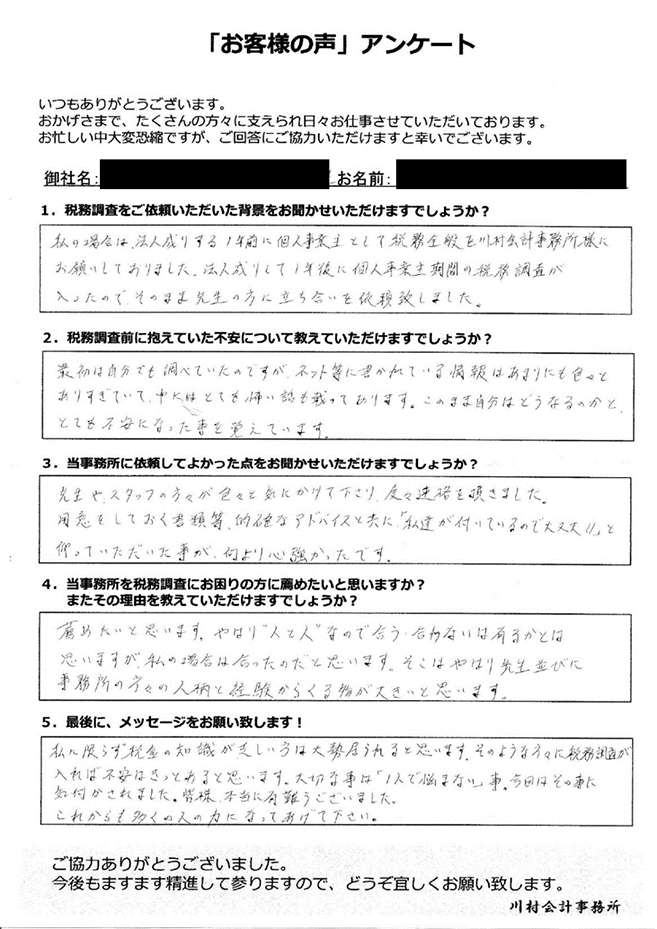 「お客様の声」アンケート
いつもありがとうございます。
おかげさまで、たくさんの方々に支えられ日々お仕事させていただいております。
お忙しい中大変恐縮ですが、ご回答にご協力いただけますと幸いでございます。
御社名: お名前:
1．税務調査をご依頼いただいた背景をお聞かせいただけますでしょうか？
私の場合は、法人成りする1年前に個人事業主として税務全般を川村会計事務所様に
お願いしておりました。法人成りして1年後に個人事業主期間の税務調査が
入ったので、そのまま先生の方に立ち合いを依頼致しました。
2．税務調査前に抱えていた不安について教えていただけますでしょうか？
最初は自分でも調べていたのですが、ネット等に書かれている情報はあまりにも色々と
ありすぎていて、中にはとても怖い話も載っております。このまま自分はどうなるのかと、
とても不安になった事を覚えています。
3．当事務所に依頼してよかった点をお聞かせいただけますでしょうか？
先生や、スタッフの方々が色々と気にかけて下さり、度々連絡を頂きました。
用意をしておく書類等、的確なアドバイスと共に、「私達が付いているので大丈夫!!」と
仰っていただいた事が、何より心強かったです。
4．当事務所を税務調査にお困りの方に薦めたいと思いますか？
またその理由を教えていただけますでしょうか？
薦めたいと思います。やはり"人と人"なので合う・合わないは有るかとは
思いますが、私の場合は合ったのだと思います。そこはやはり先生並びに
事務所の方々の人柄と経験からくる物が大きいと思います。
5．最後に、メッセージをお願い致します！
私に限らず税金の知識が乏しい方は大勢居られると思います。そのような方々に税務調査が
入れば不安はきっとあると思います。大切な事は「1人で悩まない」事。今回はその事に
気付かされました。皆様、本当に有難うございました。
これからも多くの人の力になってあげて下さい。
ご協力ありがとうございました。
今後もますます精進して参りますので、どうぞ宜しくお願い致します。
川村会計事務所